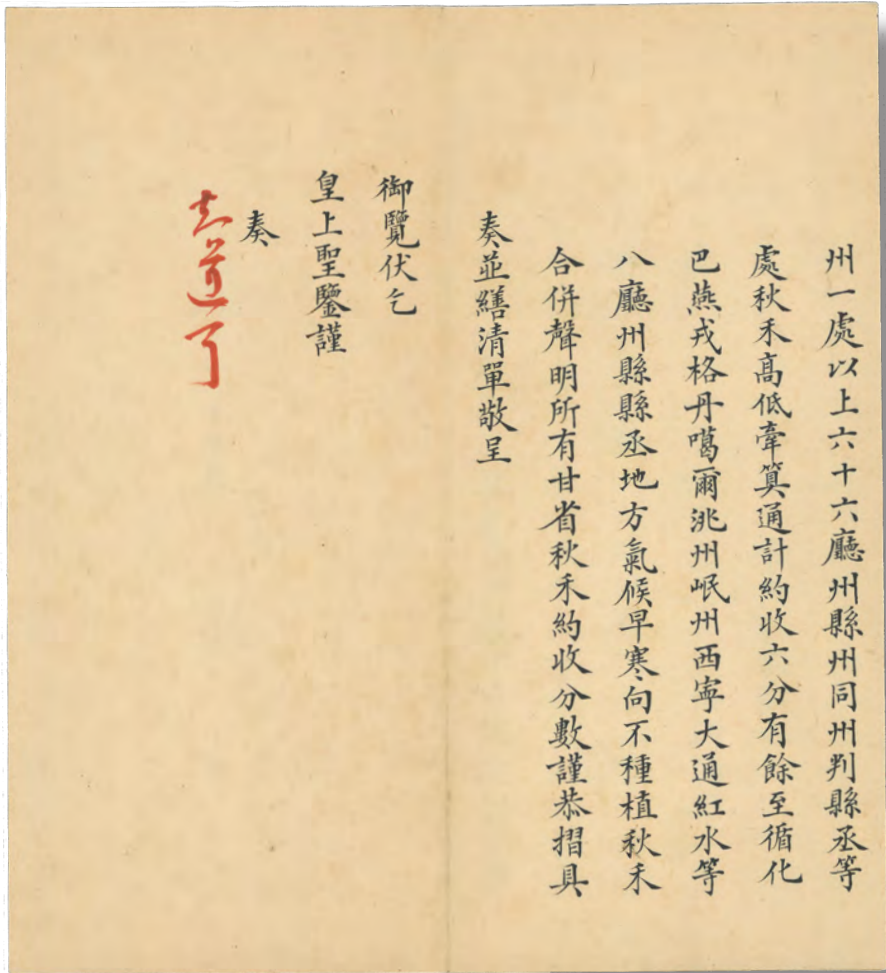 州一處以上六十六廳州縣州同州判縣丞等
處秋禾高低牽算通計約收六分有餘至循化
巴燕戎格丹噶爾洮州岷州西寧大通紅水等
八廳州縣縣丞地方氣候早寒向不種植秋禾
合併聲明所有甘省秋禾約收分數謹恭摺具
奏並繕清單敬呈
御覽伏乞
皇上聖鑒謹
奏
知道了